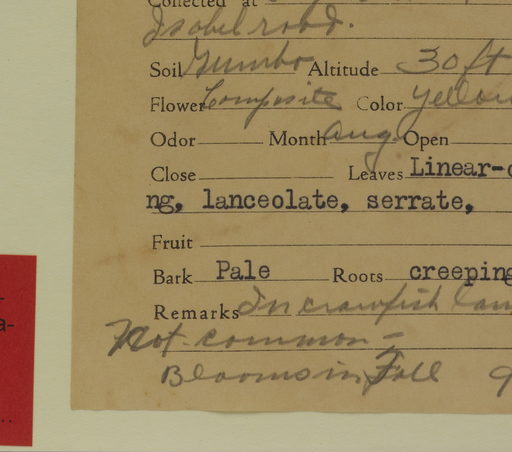 Collected at
Isobel road.
Soil Gumbo Altitude 30 ft
Flower Composite Color Yellow
Odor Month Aug Open
Close Leaves Linear-
ng, lanceolate, serrate,
Fruit
Bark Pale Roots creeping
Remarks In crawfish
Not common -
Blooms in Fall
a-